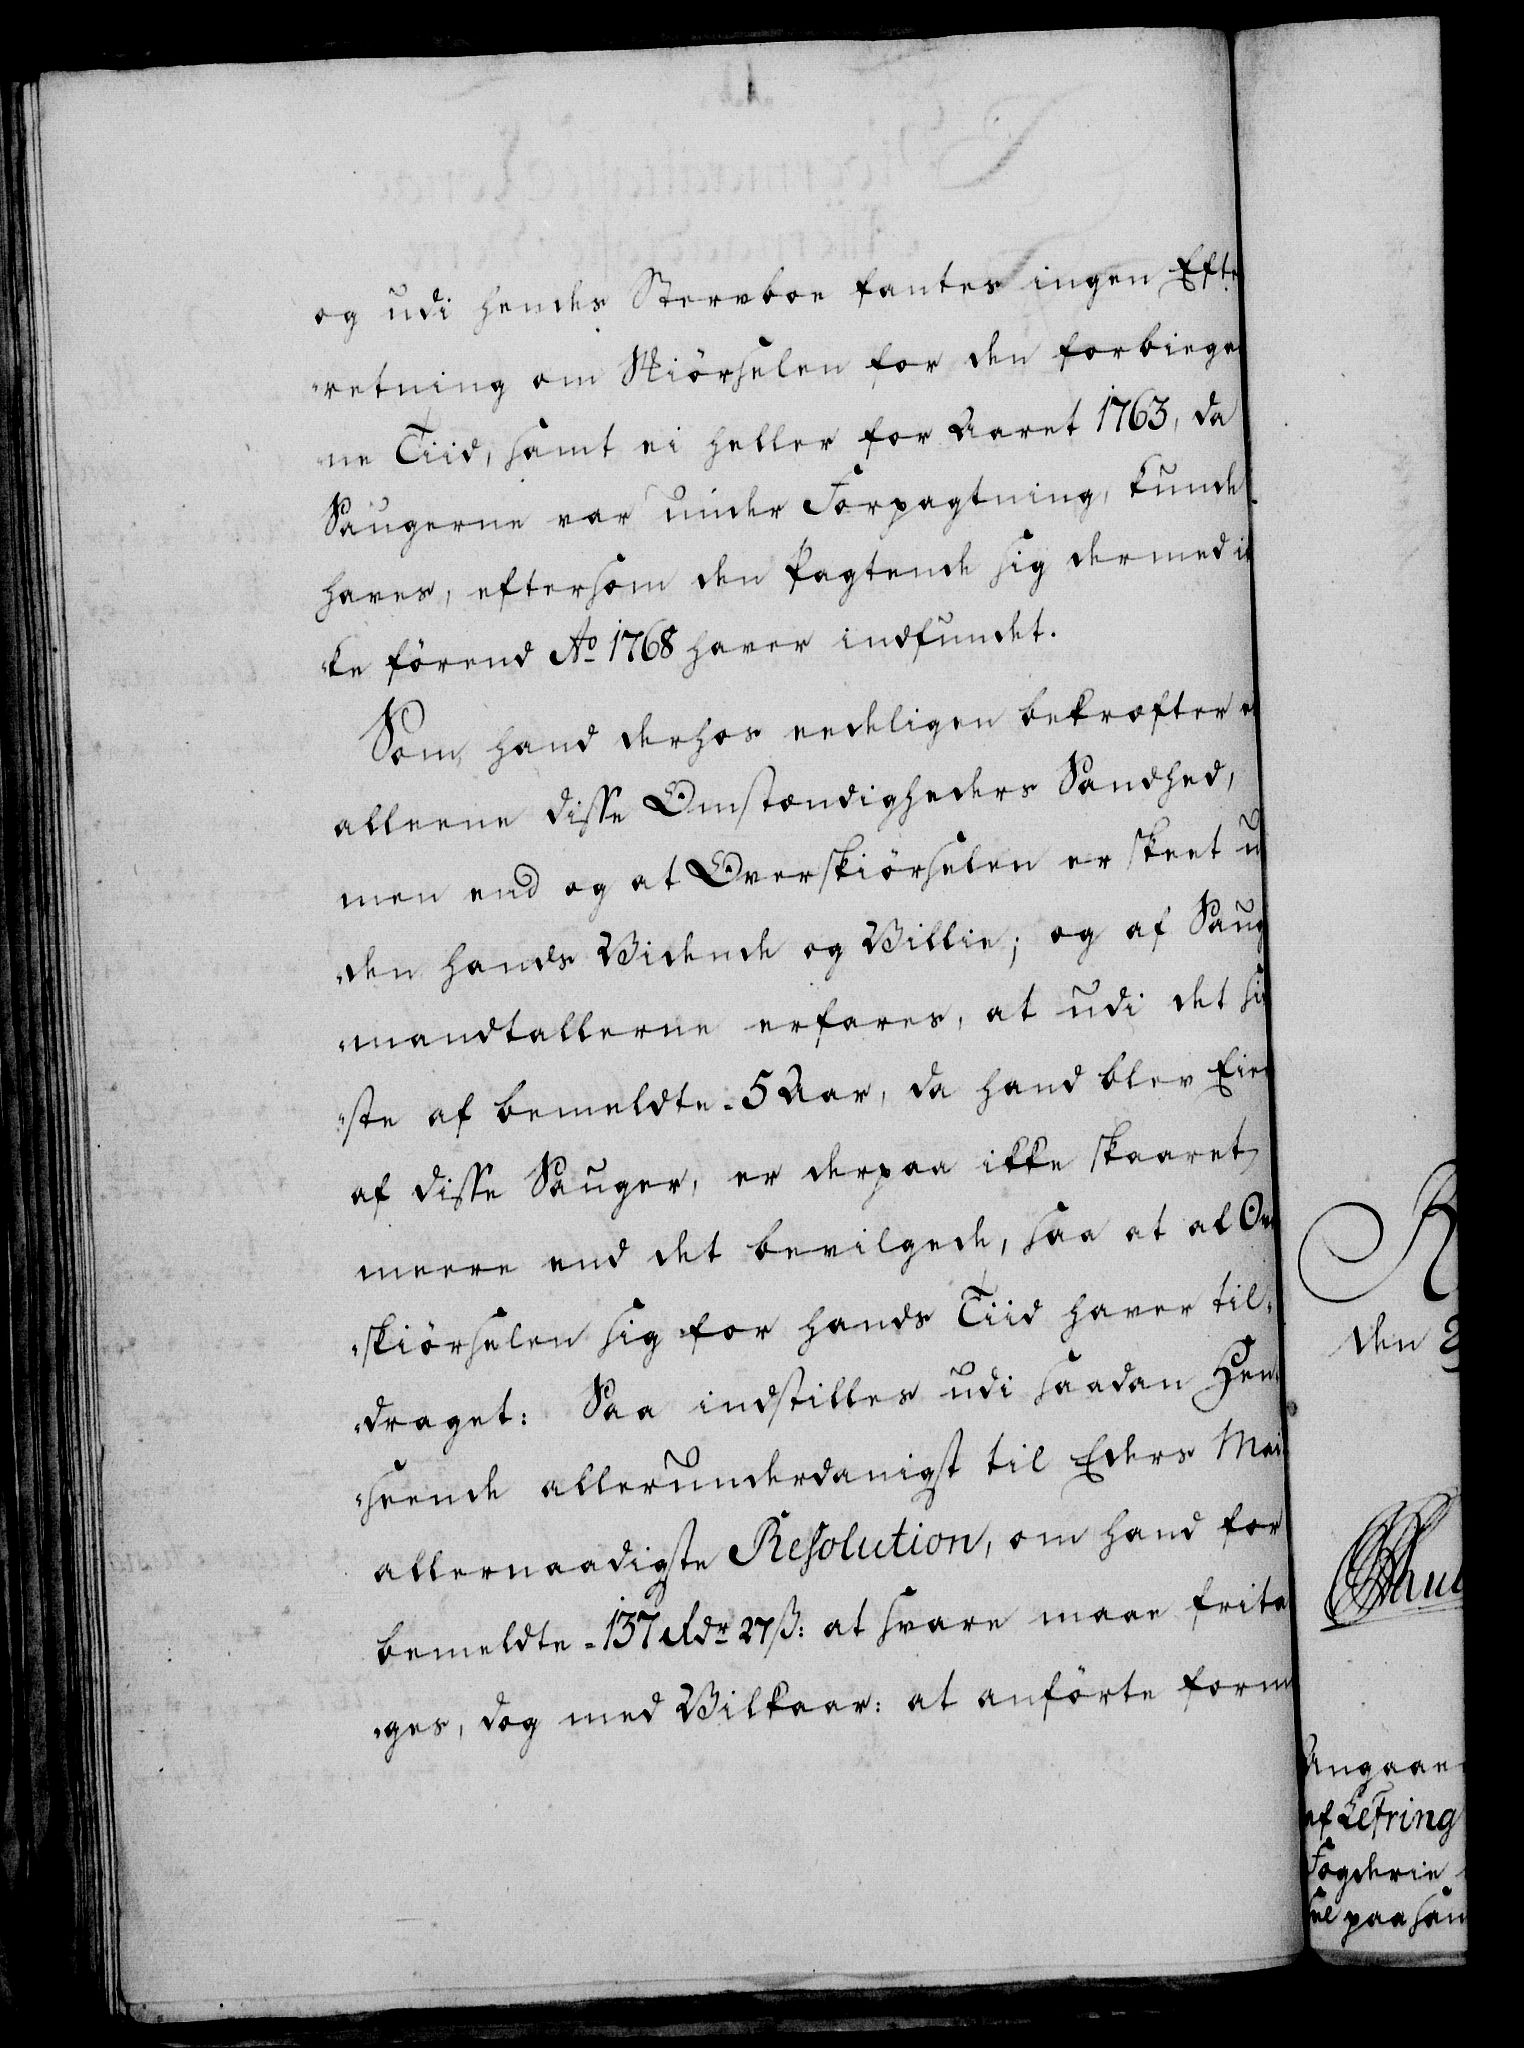 og udi hendes Stervboe fantes ingen Efte
-retning om Skiörselen for den forbiega
-ne Tiid, samt ei heller for Aaret 1763, da
Saugerne var under Forpagtning, kunde
haves, eftersom den Pagtende sig dermed ik
-ke förend Ao 1768 haver indfundet.
Som hand derhos eedeligen bekræfter ei
alleene disse Omstændigheders Sandhed,
men end og at Overskiörselen er skeet u
-den hands Vidende og Villie; og af Saug
-mandtallerne erfares, at udi det si
-ste af bemeldte 5 Aar, da hand blev Eier
af disse Sauger, er derpaa ikke skaaret
meere end det bevilgede, saa at al Ov
-skiörselen sig for hands Tiid haver til-
-draget: Saa indstilles udi saadan Hen-
-seende allerunderdanigst til Eders Mai
allernaadigste Resolution, om hand for
bemeldte 137 rdr 27 ß: at svare maae frita
-ges, dog med Vilkaar: at anförte form
R
den 2
Angaae
af Letring
Fogderie
sel paa san